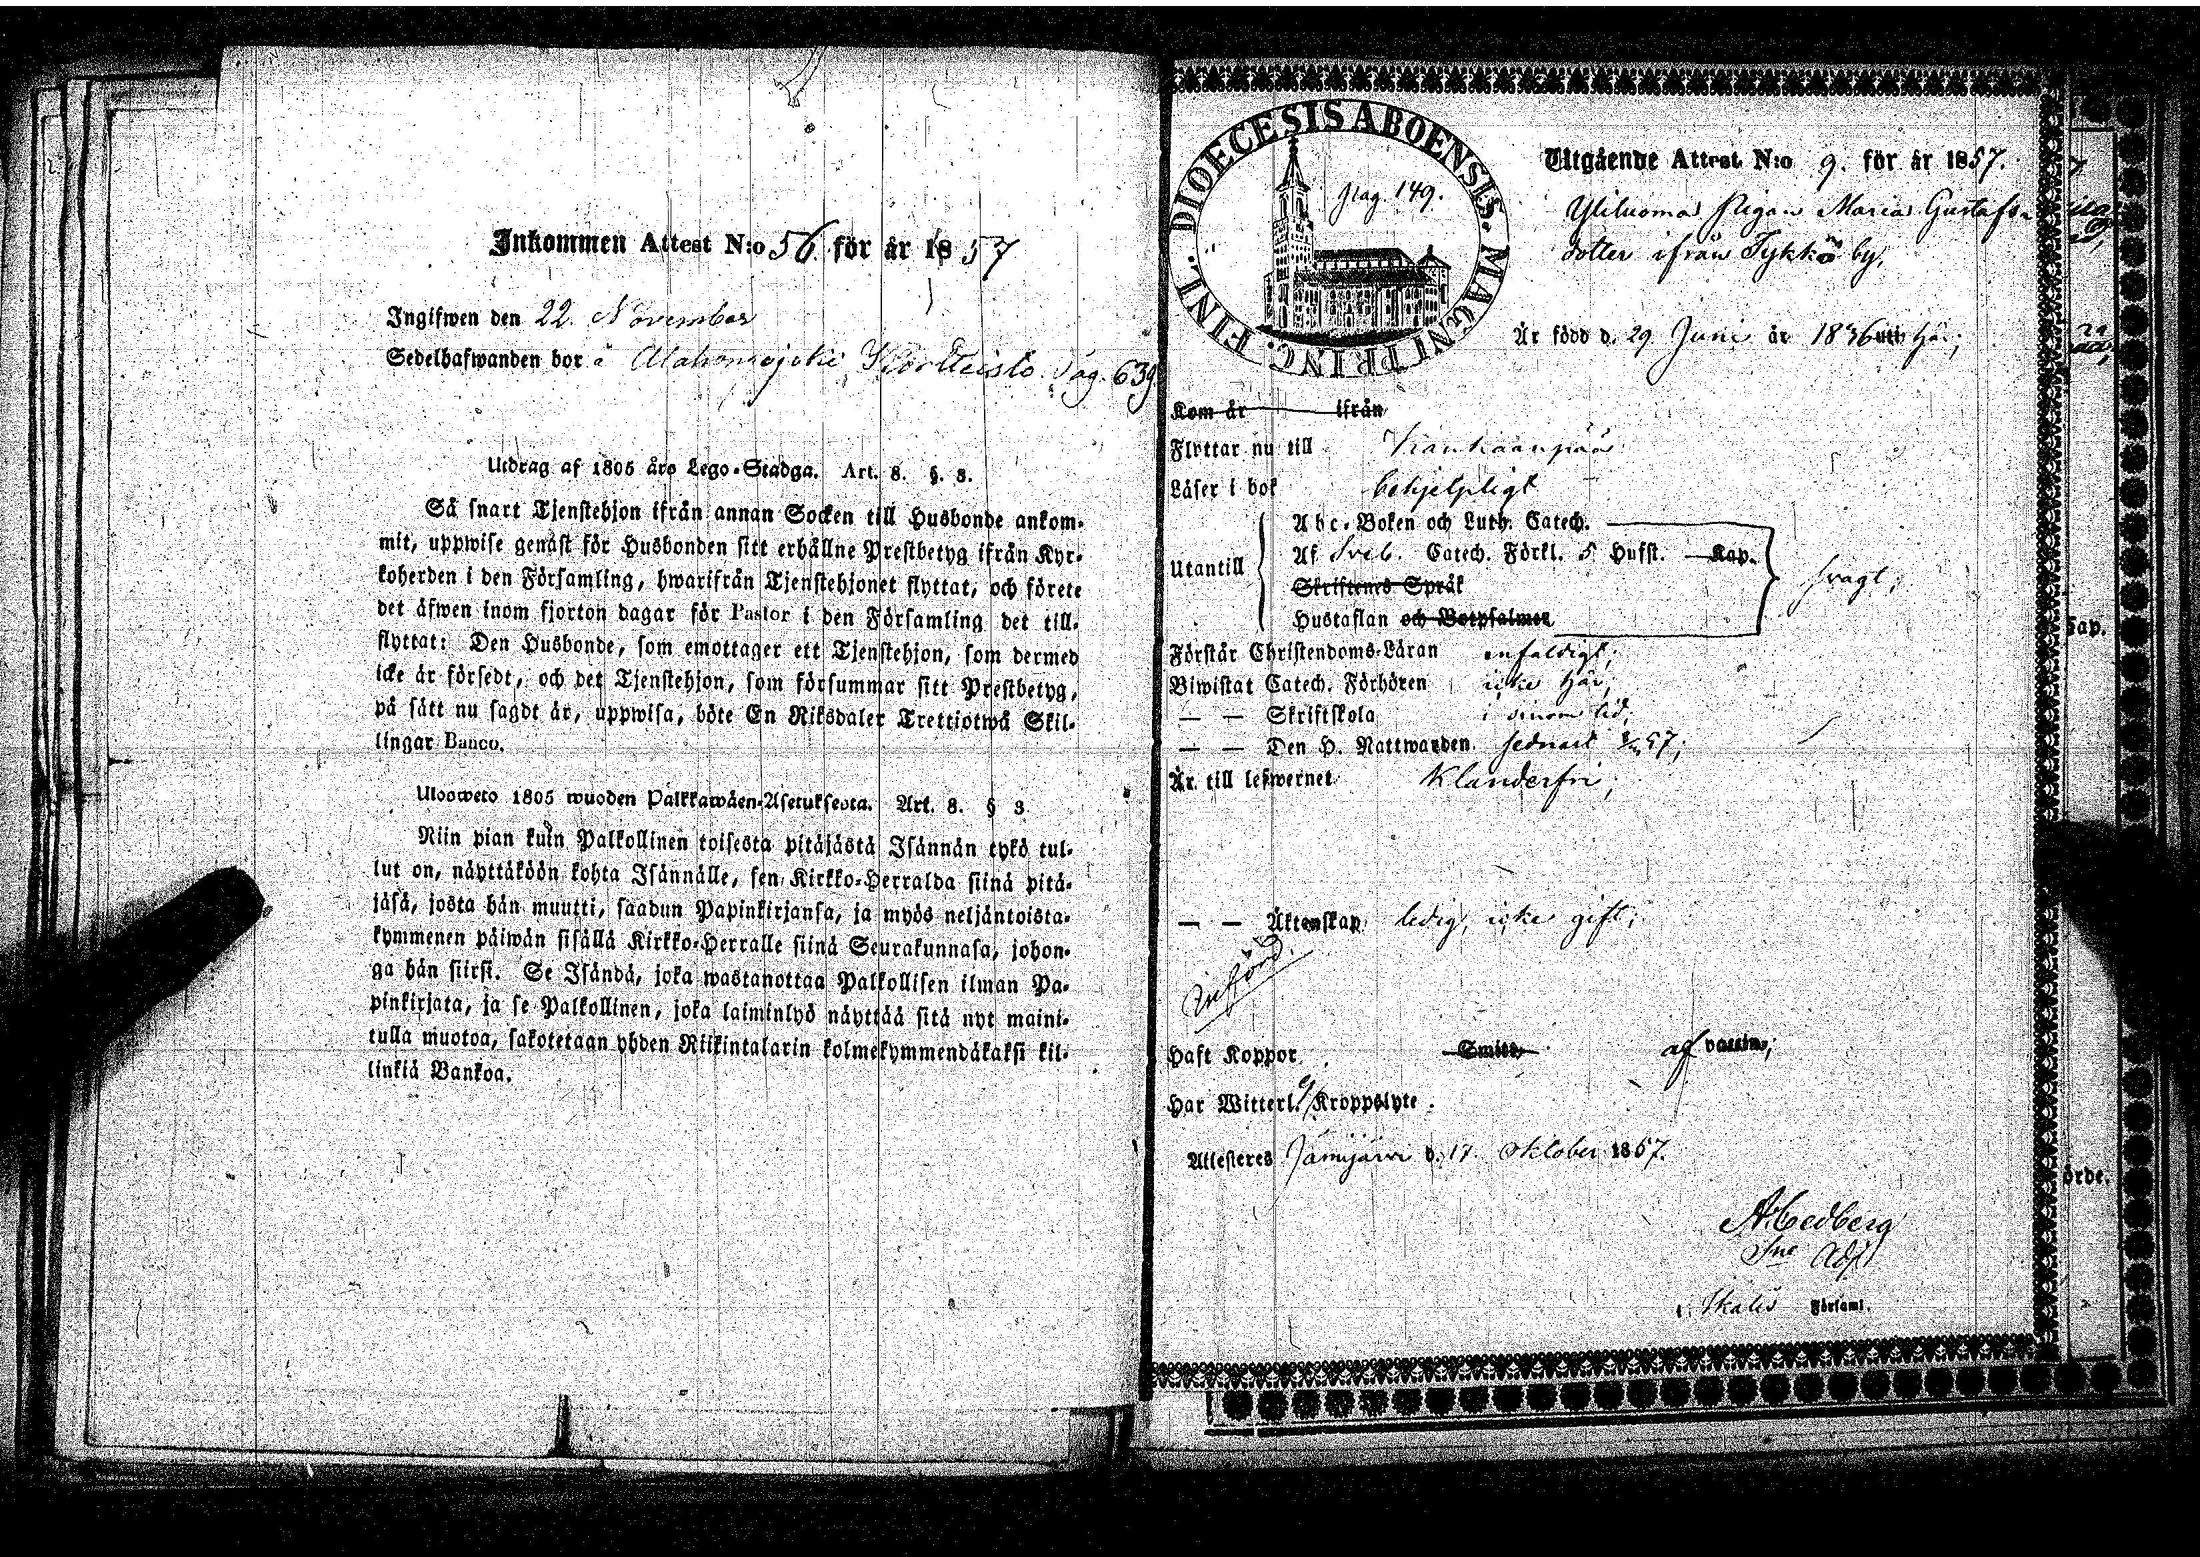 Inkommen Attest N:o 56. för år 1857
Ingifwen den 22. November
Sedelhafwanden bor å Alahonkajoki Pag. 639
Utdrag af 1805 års Lego-Stadga. Art. 8. §. 3.
Så snart Tjenstehjon ifrån annan Socken till Husbonde ankom-
mit, uppwise genast för Husbonden sitt erhållne Prestbetyg ifrån Kyr-
koherden i den Församling, hwarifrån Tjenstehjonet flyttat, och förete
det äfwen inom fjorton dagar för Pastor i den Församling det till-
flyttat: Den Husbonde, som emottager ett Tjenstehjon, som dermed
icke är försedt, och det Tjenstehjon, som försummar sitt Prestbetyg,
på sätt nu sagdt är, uppwisa, böte En Riksdaler Trettiotwå Skil-
lingar Banco.
Ulosweto 1805 wuoden Palkkawäen-Asetuksesta. Art. 8. § 3
Niin pian kuin Palkollinen toisesta pitäjästä Isännän tykö tul-
lut on, näyttäköön kohta Isännälle, sen Kirkko-Herralda siinä pitä-
jäsä, josta hän muutti, saadun Papinkirjansa, ja myös neljäntoista-
kymmenen päiwän sisällä Kirkko-Herralle siinä Seurakunnasa, johon-
ga hän siirsi. Se Isändä, joka wastanottaa Palkollisen ilman Pa-
pinkirjata, ja se Palkollinen, joka laiminlyö näyttää sitä nyt maini-
tulla muotoa, sakotetaan yhden Riikintalarin kolmekymmendäkaksi kil-
linkiä Bankoa.
DIOECESIS ABOENSIS. MAGNI PRINC. FINL.
Pag 149.
Utgående Attest N:o 9. för år 1857.
Yliluoma Pigan Maria Gustafs-
dotter ifrån Tykkö by,
Är född d. 29 Juni år 1836 uti här;
Kom år ifrån
Flyttar nu till Kankaanpää
Läser i bok behjelpligt
Utantill
Abc-Boken och Luth. Catech.
Af Sveb. Catech. Förkl. 5 Hufst. Kap.
Skriftens Språk
Hustaflan och Botpsalmer
svagt;
Förstår Christendoms-Läran enfaldigt;
Biwistat Catech. Förhören icke här;
— — Skriftskola i sinom tid;
— — Den H. Nattwarden sednast 57;
Är till lefwernet Klanderfri;
— — Äktenskap ledig, icke gift;
Införd.
Haft Koppor Smitt af vaccin;
Har Witterl. ej Kroppslyte.
Attesteres Jämijärvi d. 17 Oktober 1857.
A. Cedberg
Sne Adj
i Ikalis Församl.